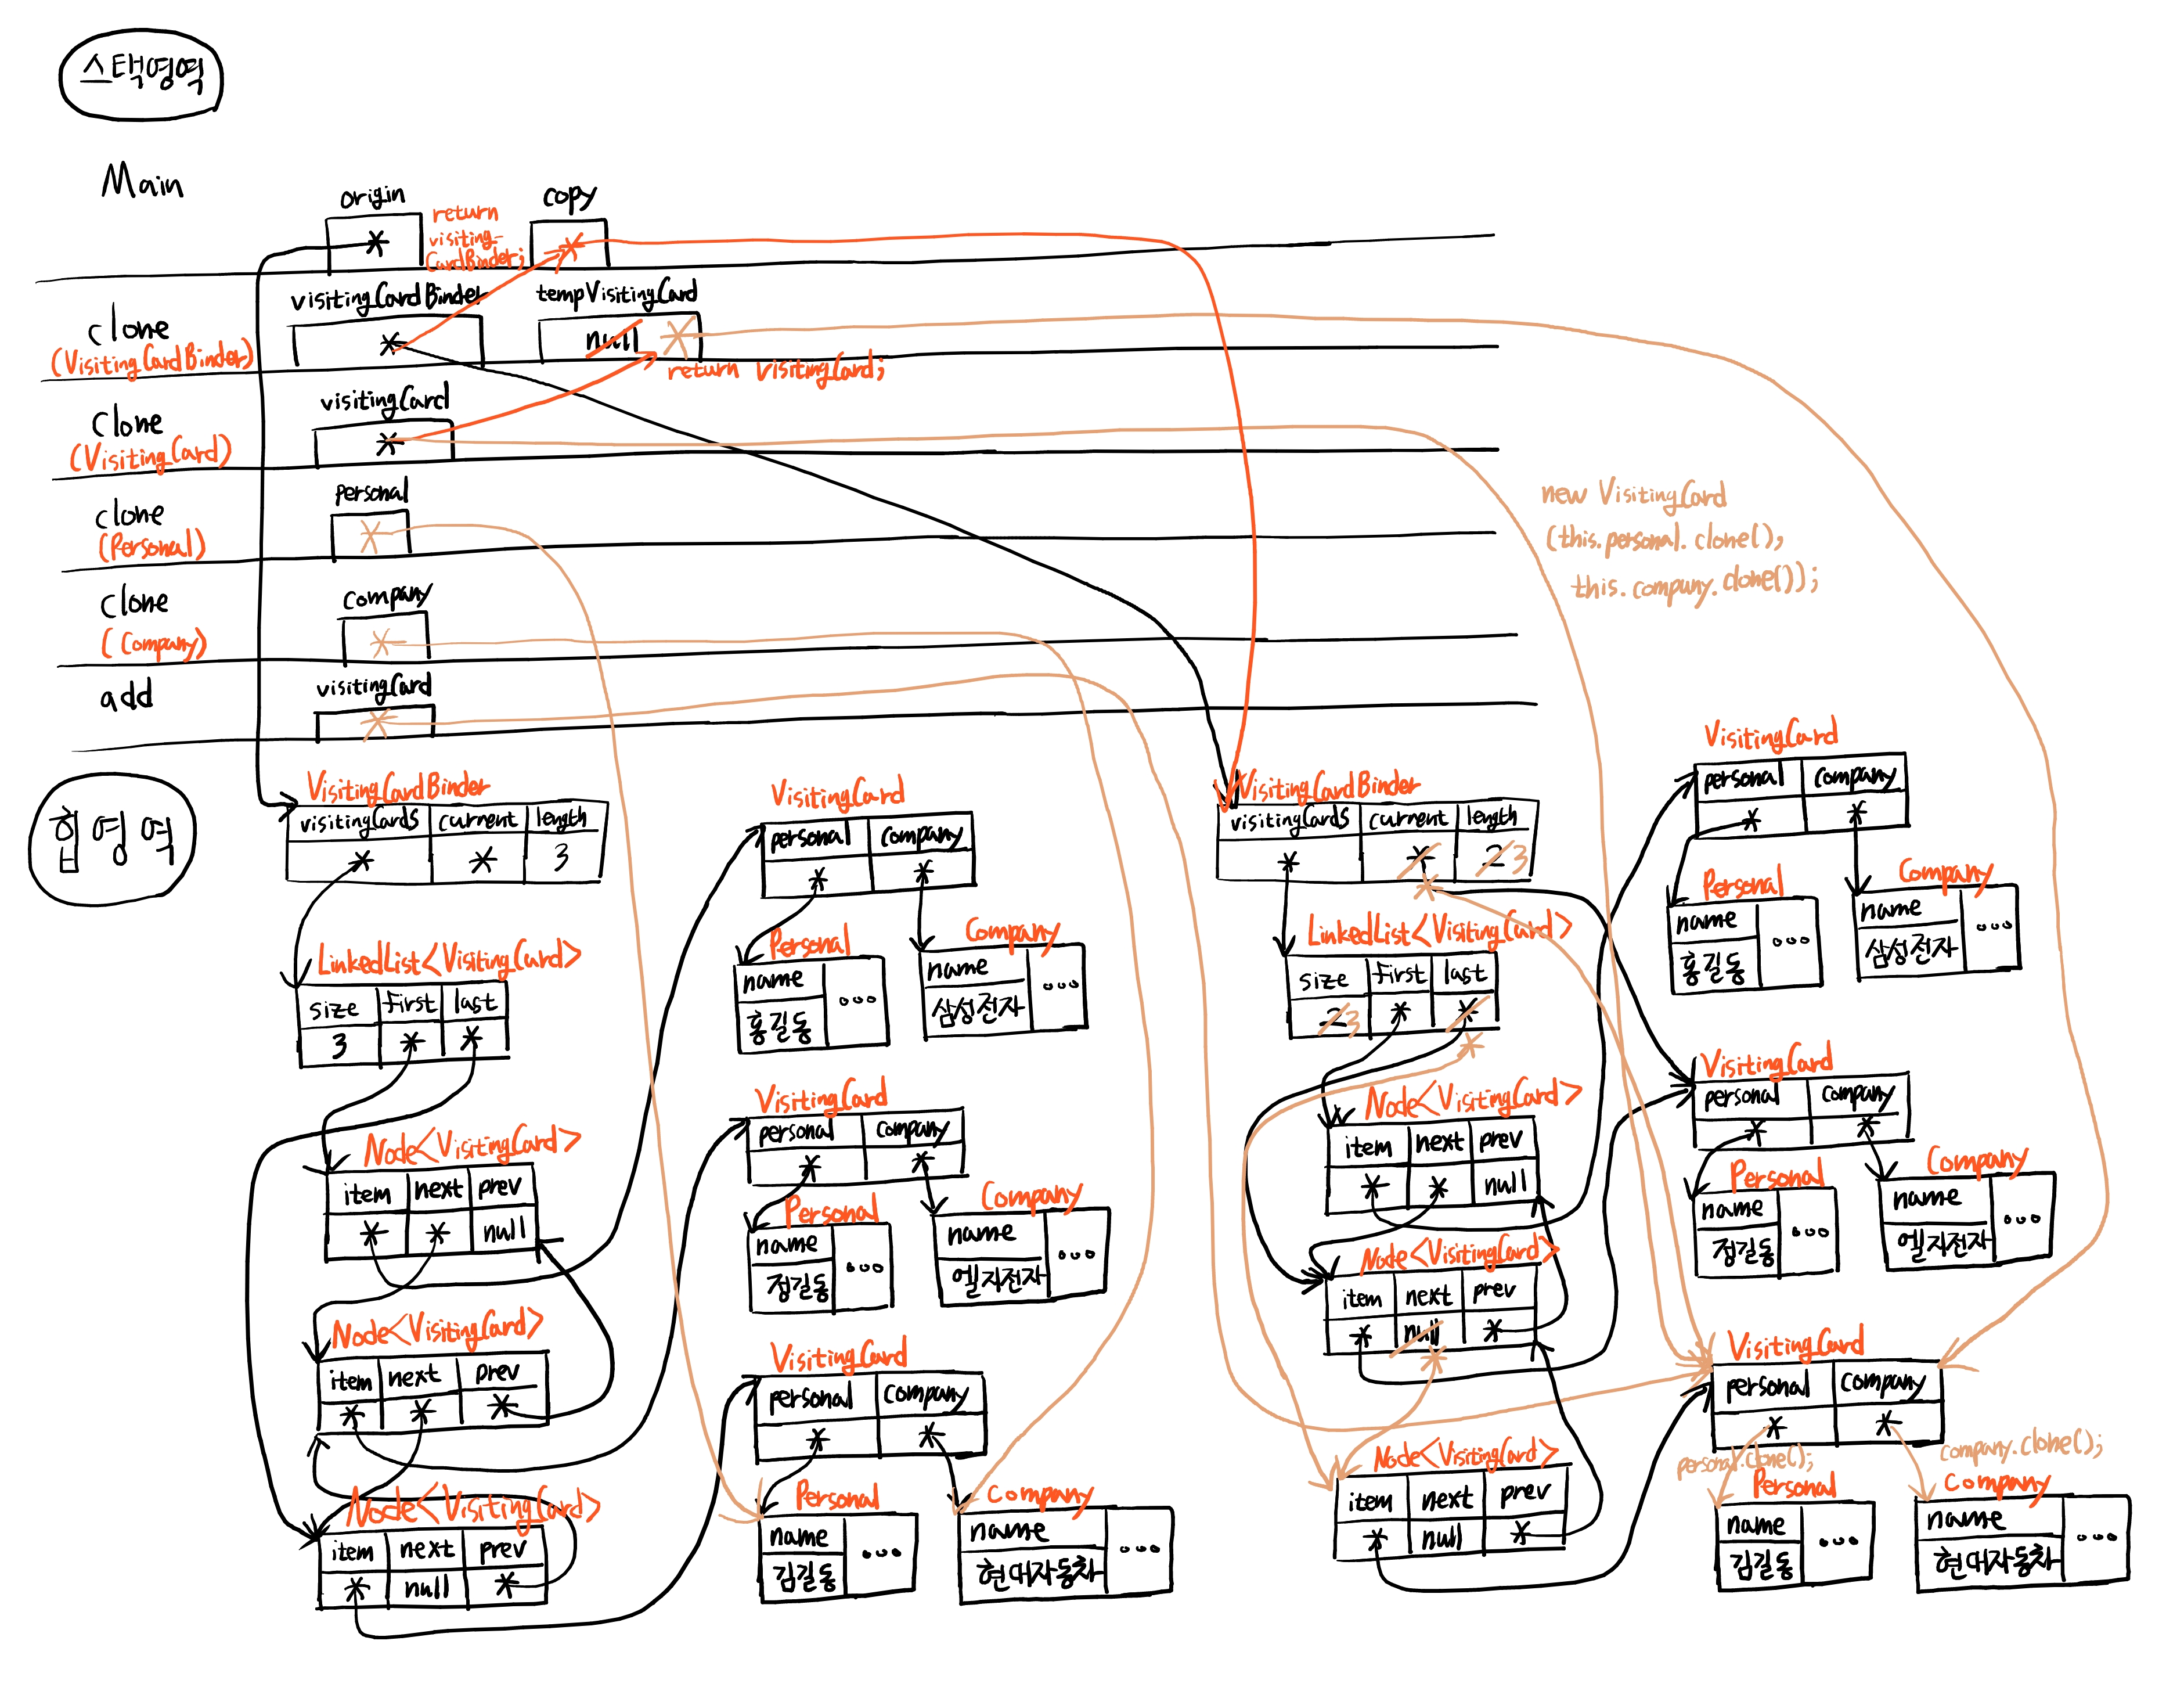 스택영역
Main
origin
copy
return
visiting-
CardBinder;
*
*
clone
(VisitingCardBinder)
visitingCardBinder
tempVisitingCard
*
null
*
return visitingCard;
clone
(VisitingCard)
visitingCard
*
clone
(Personal)
personal
*
new VisitingCard
(this.personal.clone(),
this.company.clone());
clone
(Company)
company
*
add
visitingCard
*
힙영역
VisitingCardBinder
visitingCards current length
* * 3
LinkedList<VisitingCard>
size first last
3 * *
Node<VisitingCard>
item next prev
* * null
Node<VisitingCard>
item next prev
* * *
Node<VisitingCard>
item next prev
* null *
VisitingCard
personal company
* *
Personal
name ...
홍길동
Company
name ...
삼성전자
VisitingCard
personal company
* *
Personal
name ...
정길동
Company
name ...
엘지전자
VisitingCard
personal company
* *
Personal
name ...
김길동
Company
name ...
현대자동차
VisitingCardBinder
visitingCards current length
* * 2 3
*
LinkedList<VisitingCard>
size first last
2 3 * *
*
Node<VisitingCard>
item next prev
* * null
Node<VisitingCard>
item next prev
* null *
*
Node<VisitingCard>
item next prev
* null *
VisitingCard
personal company
* *
Personal
name ...
홍길동
Company
name ...
삼성전자
VisitingCard
personal company
* *
Personal
name ...
정길동
Company
name ...
엘지전자
VisitingCard
personal company
* *
personal.clone();
company.clone();
Personal
name ...
김길동
Company
name ...
현대자동차